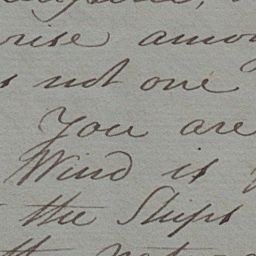 rise amo
s not one
You are
Wind is
the Ships